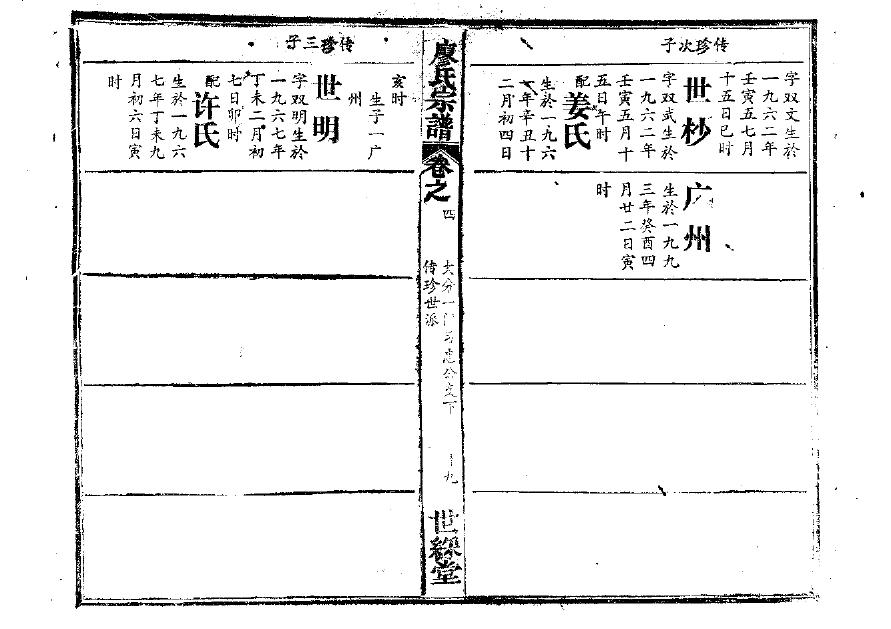 传珍次子
字双文生於
一九六二年
壬寅五七月
十五日巳时
世杪
字双武生於
一九六二年
壬寅五月十
五日午时
配
姜氏
生於一九六
一年辛丑十
二月初四日
广州
生於一九九
三年癸酉四
月廿二日寅
时
廖氏宗譜
卷之
四
传珍世派
九
世綵堂
传珍三子
亥时
生子一广
州
世明
字双明生於
一九六七年
丁未二月初
七日卯时
配
许氏
生於一九六
七年丁未九
月初六日寅
时